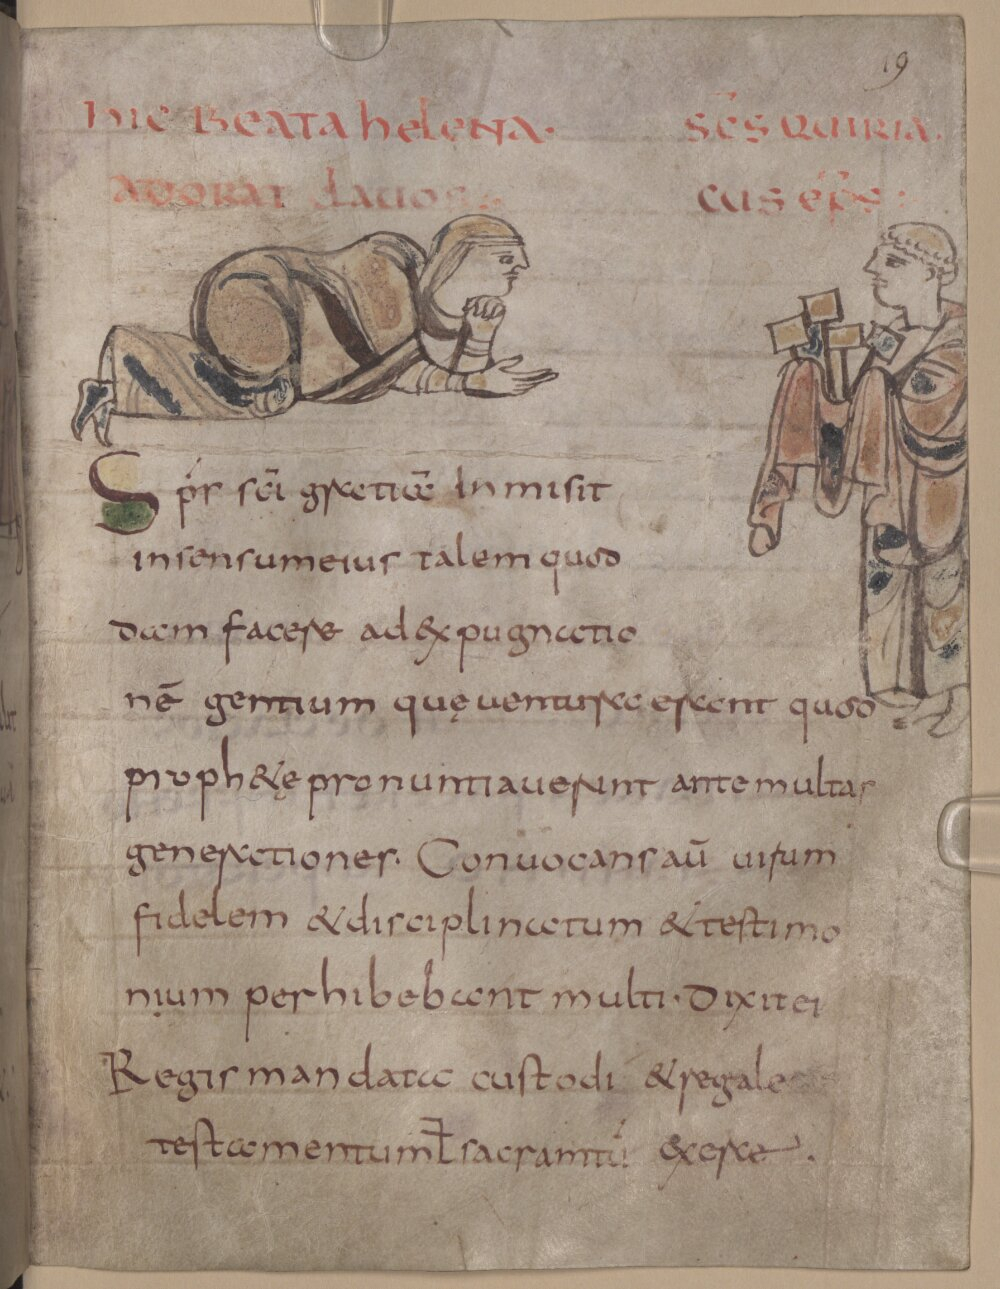 19
hIC BEATA hELENA· SC̄S QUIRIA
ADORAT CLAVOS: CUS EP̄S:
Sp̄s sc̄i gratiae Inmisit
insensumeius talem quod
dam facere ad&xpugnatio
nē gentium quę venturae erant quod
proph&ę pronuntiaverunt ante multas
generationes. Convocans aū virum
fidelem &disciplinatum &testimo
nium perhibebant multi· Dixit ei
Regis mandata custodi &regale
testamentum ł sacramtū &xerce.